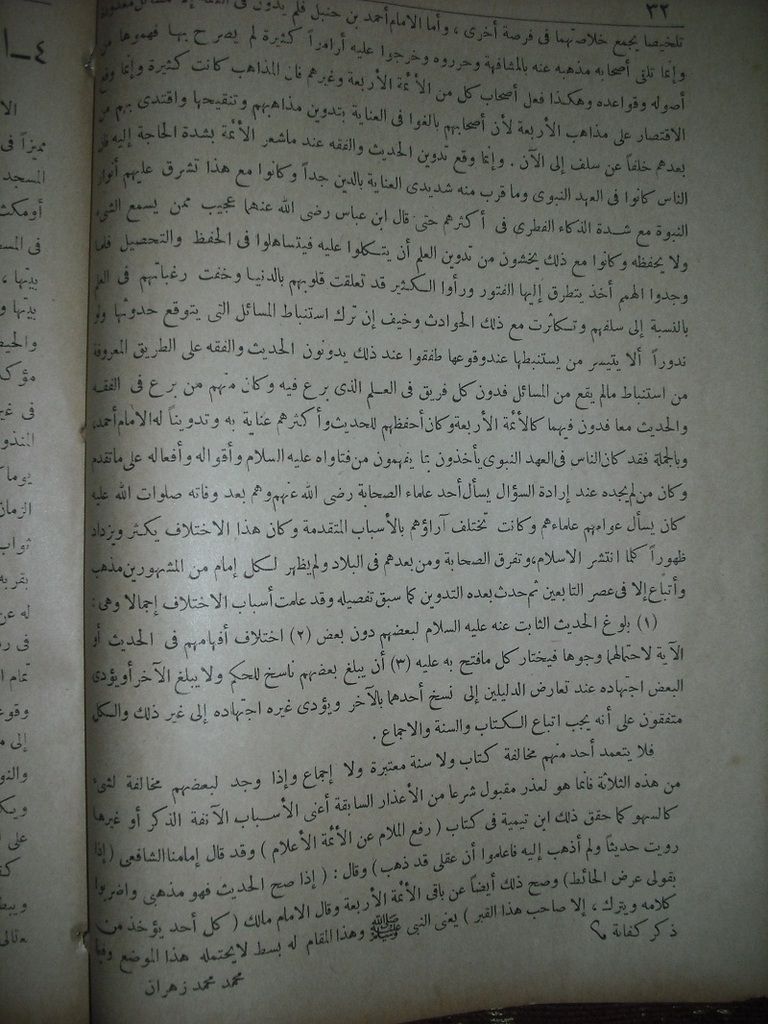 ٣٢
تلخيصا يجمع خلاصتهما فى فرصة أخرى ، وأما الامام أحمد بن حنبل فلم يدون فى
وإنما تلقى أصحابه مذهبه عنه بالمشافهة وحرروه وخرجوا عليه أرامراً كثيرة لم يصرح بها ففهموها من
أصوله وقواعده وهكذا فعل أصحاب كل من الأئمة الأربعة وغيرهم فان المذاهب كانت كثيرة وإنما وقع
الاقتصار على مذاهب الأربعة لأن أصحابهم بالغوا فى العناية بتدوين مذاهبهم وتنقيحها واقتدى بهم من
بعدهم خلفاً عن سلف إلى الآن . وإنما وقع تدوين الحديث والفقه عند ماشعر الأئمة بشدة الحاجة إليه فان
الناس كانوا فى العهد النبوى وما قرب منه شديدى العناية بالدين جداً وكانوا مع هذا تشرق عليهم أنوار
النبوة مع شدة الذكاء الفطرى فى أكثرهم حتى قال ابن عباس رضى الله عنهما عجيب ممن يسمع الشىء
ولا يحفظه وكانوا مع ذلك يخشون من تدوين العلم أن يتكلوا عليه فيتساهلوا فى الحفظ والتحصيل فلما
وجدوا الهمم أخذ يتطرق إليها الفتور ورأوا الكثير قد تعلقت قلوبهم بالدنيا وخفت رغباتهم فى العلم
بالنسبة إلى سلفهم وتكاثرت مع ذلك الحوادث وخيف إن ترك استنباط المسائل التى يتوقع حدوثها ولو
ندوراً ألا يتيسر من يستنبطها عند وقوعها طفقوا عند ذلك يدونون الحديث والفقه على الطريق المعروفة
من استنباط مالم يقع من المسائل فدون كل فريق فى العلم الذى برع فيه وكان منهم من برع فى الفقه
والحديث معا فدون فيهما كالأئمة الأربعة وكان أحفظهم للحديث وأكثرهم عناية به وتدويناً له الامام أحمد،
وبالجملة فقد كان الناس فى العهد النبوى يأخذون بما يفهمون من فتاواه عليه السلام وأقواله وأفعاله على ماتقدم
وكان من لم يجده عند إرادة السؤال يسأل أحد علماء الصحابة رضى الله عنهم وهم بعد وفاته صلوات الله عليه
كان يسأل عوامهم علماءهم وكانت تختلف آراؤهم بالأسباب المتقدمة وكان هذا الاختلاف يكثر ويزداد
ظهوراً كلما انتشر الاسلام،وتفرق الصحابة ومن بعدهم فى البلاد ولم يظهر لكل إمام من المشهورين مذهب
وأتباع إلا فى عصر التابعين ثم حدث بعده التدوين كما سبق تفصيله وقد علمت أسباب الاختلاف إجمالا وهى :
(١) بلوغ الحديث الثابت عنه عليه السلام لبعضهم دون بعض (٢) اختلاف أفهامهم فى الحديث أو
الآية لاحتمالهما وجوها فيختار كل مافتح به عليه (٣) أن يبلغ بعضهم ناسخ للحكم ولا يبلغ الآخر أو يؤدى
البعض اجتهاده عند تعارض الدليلين إلى نسخ أحدهما بالآخر ويؤدى غيره اجتهاده إلى غير ذلك والكل
متفقون على أنه يجب اتباع الكتاب والسنة والاجماع .
فلا يتعمد أحد منهم مخالفة كتاب ولا سنة معتبرة ولا إجماع وإذا وجد لبعضهم مخالفة لشىء
من هذه الثلاثة فأنما هو لعذر مقبول شرعا من الأعذار السابقة أعنى الأسباب الآنفة الذكر أو غيرها
كالسهو كما حقق ذلك ابن تيمية فى كتاب ( رفع الملام عن الأئمة الأعلام ) وقد قال إمامنا الشافعى (إذا
رويت حديثاً ولم أذهب إليه فاعلموا أن عقلى قد ذهب) وقال : ( إذا صح الحديث فهو مذهبى واضربوا
بقولى عرض الحائط) وصح ذلك أيضاً عن باقى الأئمة الأربعة وقال الامام مالك ( كل أحد يؤخذ من
كلامه ويترك ، إلا صاحب هذا القبر ) يعنى النبى ﷺ وهذا المقام له بسط لايحتمله هذا الموضع وفيما
ذكر كفاية
محمد محمد زهران
٤ـ
مميزاً فى
المسجد
أومكث
فى المس
بيتها ،
بيتها و
والحيض
مؤكد
فى غير
المنذو
يوما
الزمان
ثواب
بقربه
له عن
تمام ا
وقوع
إلى م
على
تعالى